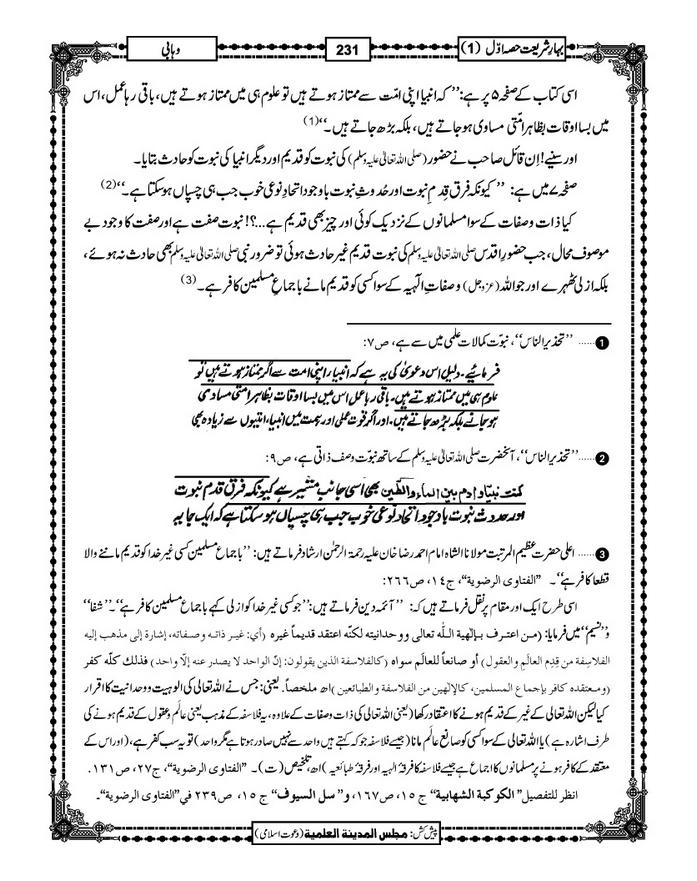 بہارِ شریعت حصہ اوّل (1)
231
وہابی
اسی کتاب کے صفحہ ۵ پر ہے: ’’کہ انبیا اپنی امّت سے ممتاز ہوتے ہیں تو علوم ہی میں ممتاز ہوتے ہیں، باقی رہا عمل، اس
میں بسا اوقات بظاہر امّتی مساوی ہو جاتے ہیں، بلکہ بڑھ جاتے ہیں۔‘‘ (1)
اور سنیے! اِن قائل صاحب نے حضور (صلی اللہ تعالیٰ علیہ وسلم) کی نبوت کو قدیم اور دیگر انبیا کی نبوت کو حادث بتایا۔
صفحہ ۷ میں ہے: ’’کیونکہ فرق قِدمِ نبوت اور حُدوثِ نبوت باوجود اتحادِ نوعی خوب جب ہی چسپاں ہوسکتا ہے۔‘‘ (2)
کیا ذات و صفات کے سوا مسلمانوں کے نزدیک کوئی اور چیز بھی قدیم ہے...؟! نبوت صفت ہے اور صفت کا وجود بے
موصوف محال، جب حضورِ اقدس صلی اللہ تعالیٰ علیہ وسلم کی نبوت قدیم غیر حادث ہوئی تو ضرور نبی صلی اللہ تعالیٰ علیہ وسلم بھی حادث نہ ہوئے،
بلکہ ازلی ٹھہرے اور جو اللہ (عزوجل) و صفاتِ الٰہیہ کے سوا کسی کو قدیم مانے باجماعِ مسلمین کافر ہے۔ (3)
1 ...... ’’تحذیر الناس‘‘، نبوّت کمالات علمی میں سے ہے، ص۷:
فرمائیے۔ دلیل اس دعویٰ کی یہ ہے کہ انبیاء اپنی امت سے اگر ممتاز ہوتے ہیں تو
علوم ہی میں ممتاز ہوتے ہیں۔ باقی رہا عمل اس میں بسا اوقات بظاہر امتی مساوی
ہو جاتے بلکہ بڑھ جاتے ہیں۔ اور اگر قوت عملی اور ہمت میں انبیاء امتیوں سے زیادہ بھی
2 ...... ’’تحذیر الناس‘‘، آنحضرت صلی اللہ تعالیٰ علیہ وسلم کے ساتھ نبوّت وصف ذاتی ہے، ص۹:
کنت نبیّا و ادم بین الماء والطّین بھی اسی جانب مشیر ہے کیونکہ فرق قدم نبوت
اور حدوث نبوت باوجود اتحاد نوعی خوب جب ہی چسپاں ہو سکتا ہے کہ ایک جا یہ
3 ...... اعلی حضرت عظیم المرتبت مولانا الشاہ امام احمد رضا خان علیہ رحمۃ الرحمٰن ارشاد فرماتے ہیں: ’’باجماع مسلمین کسی غیر خدا کو قدیم ماننے والا
قطعا کافر ہے‘‘۔ ’’الفتاوی الرضویة‘‘، ج۱٤، ص۲٦٦:
اسی طرح ایک اور مقام پر نقل فرماتے ہیں کہ: ’’آئمہ دین فرماتے ہیں: ’’جو کسی غیر خدا کو ازلی کہے باجماع مسلمین کافر ہے‘‘۔ ’’شفا‘‘
و ’’نسیم‘‘ میں فرمایا: (من اعترف بإلهية الله تعالى ووحدانيته لكنّه اعتقد قديماً غيره (أي: غير ذاته وصفاته، إشارة إلى مذهب إليه
الفلاسفة من قِدم العالَم والعقول) أو صانعاً للعالَم سواه (كالفلاسفة الذين يقولون: إنّ الواحد لا يصدر عنه إلّا واحد) فذلك كلّه كفر
(ومعتقده كافر بإجماع المسلمين، كالإلهين من الفلاسفة والطبائعين) اهـ ملخصاً. یعنی: جس نے اللہ تعالی کی الوہیت و وحدانیت کا اقرار
کیا لیکن اللہ تعالی کے غیر کے قدیم ہونے کا اعتقاد رکھا (یعنی اللہ تعالی کی ذات وصفات کے علاوہ، یہ فلاسفہ کے مذہب یعنی عالَم و عقول کے قدیم ہونے کی
طرف اشارہ ہے) یا اللہ تعالی کے سوا کسی کو صانع عالَم مانا (جیسے فلاسفہ جو کہ کہتے ہیں واحد سے نہیں صادر ہوتا ہے مگر واحد) تو یہ سب کفر ہے، (اور اس کے
معتقد کے کافر ہونے پر مسلمانوں کا اجماع ہے جیسے فلاسفہ کا فرقۂ الٰہیہ اور فرقۂ طبائعیہ) اھ، تلخیص (ت)۔ ’’الفتاوی الرضویة‘‘، ج۲۷، ص۱۳۱.
انظر للتفصيل ’’الكوكبة الشهابية‘‘ ج ١٥، ص ١٦٧، و ’’سل السيوف‘‘ ج ١٥، ص ٢٣٩ في ’’الفتاوى الرضوية‘‘۔
پیش کش: مجلس المدینة العلمیة (دعوت اسلامی)